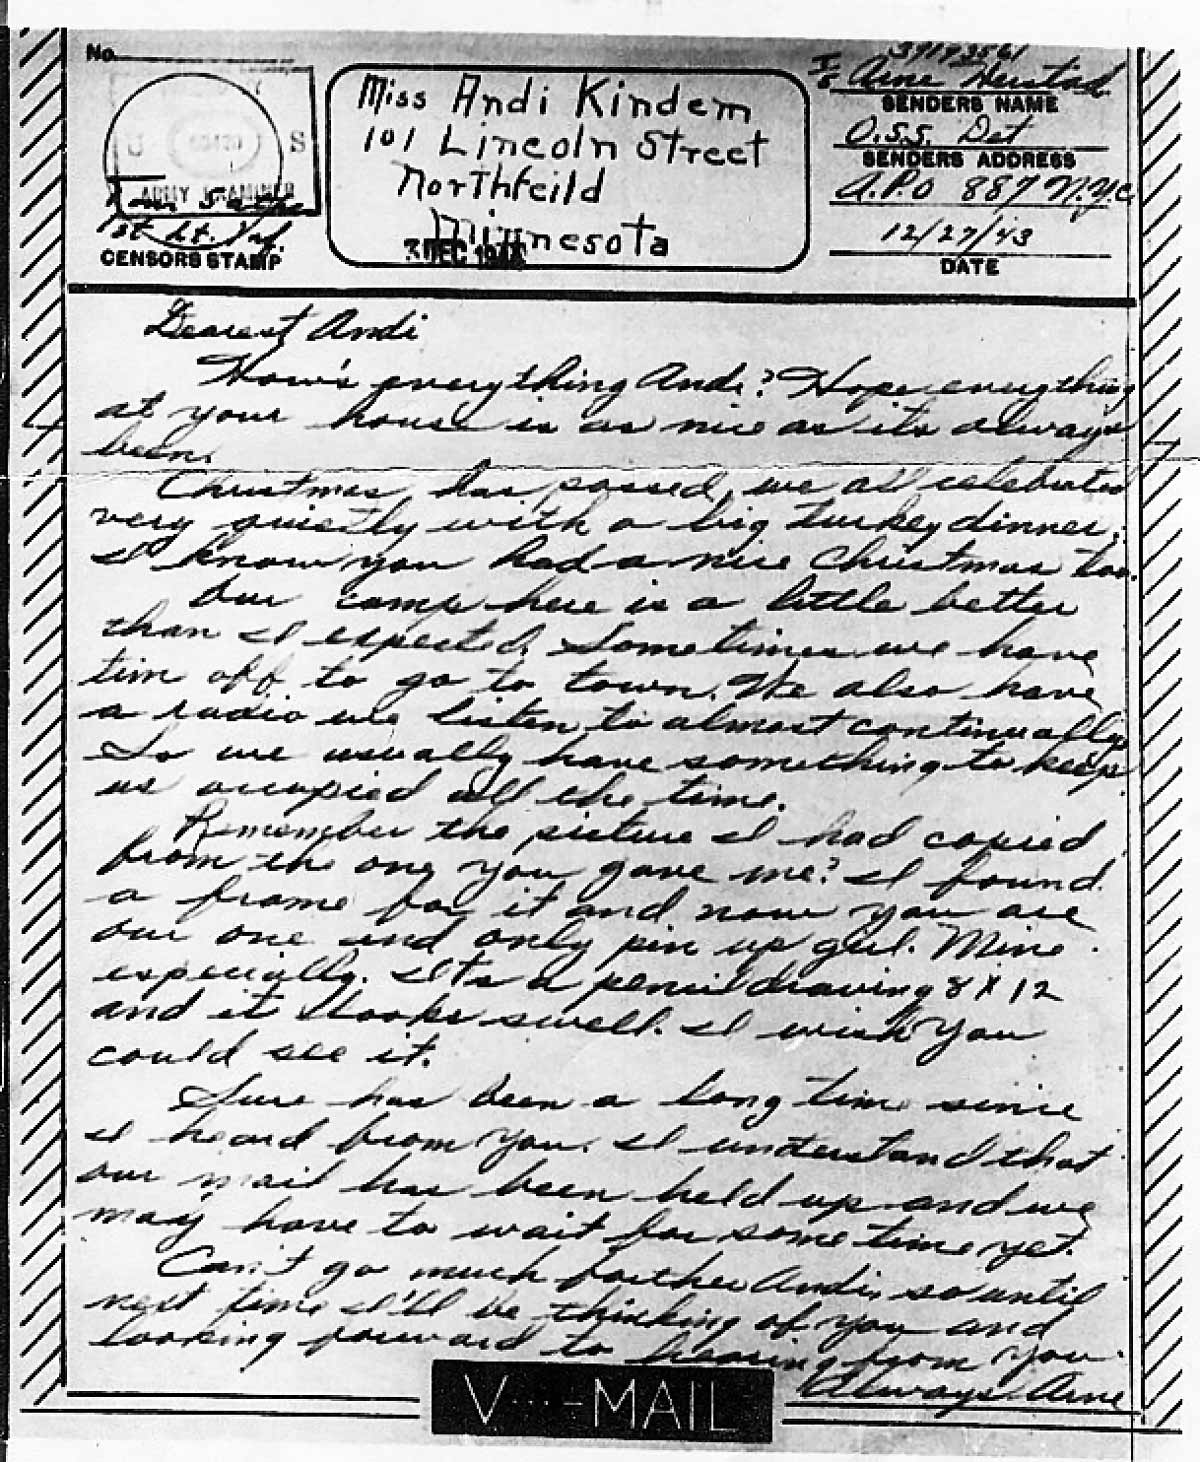 No.
39193561
Miss Andi Kindem
T/5 Arne Herstad
SENDERS NAME
101 Lincoln Street
O.S.S. Det
SENDERS ADDRESS
Northfeild
A.P.O 887 N.Y.C.
Minnesota
12/27/43
DATE
U S
ARMY EXAMINER
1st Lt. Inf.
CENSORS STAMP
DEC
Dearest Andi
How's everything Andi? Hope everything
at your house is as nice as its always
been.
Christmas has passed, we all celebrated
very quietly with a big turkey dinner.
I know you had a nice Christmas too.
Our camp here is a little better
than I expected. Sometimes we have
tim off to go to town. We also have
a radio we listen to almost continually
So we usually have something to keep
us occupied all the time.
Remember the picture I had copied
from the one you gave me? I found
a frame for it and now you are
our one and only pin up girl. Mine
especially. It's a pencil drawing 8 X 12
and it looks swell. I wish you
could see it.
Sure has been a long time since
I heard from you. I understand that
our mail has been held up and we
may have to wait for some time yet.
Can't go much farther Andi, so until
next time I'll be thinking of you and
looking forward to hearing from you.
Always Arne
V···—MAIL